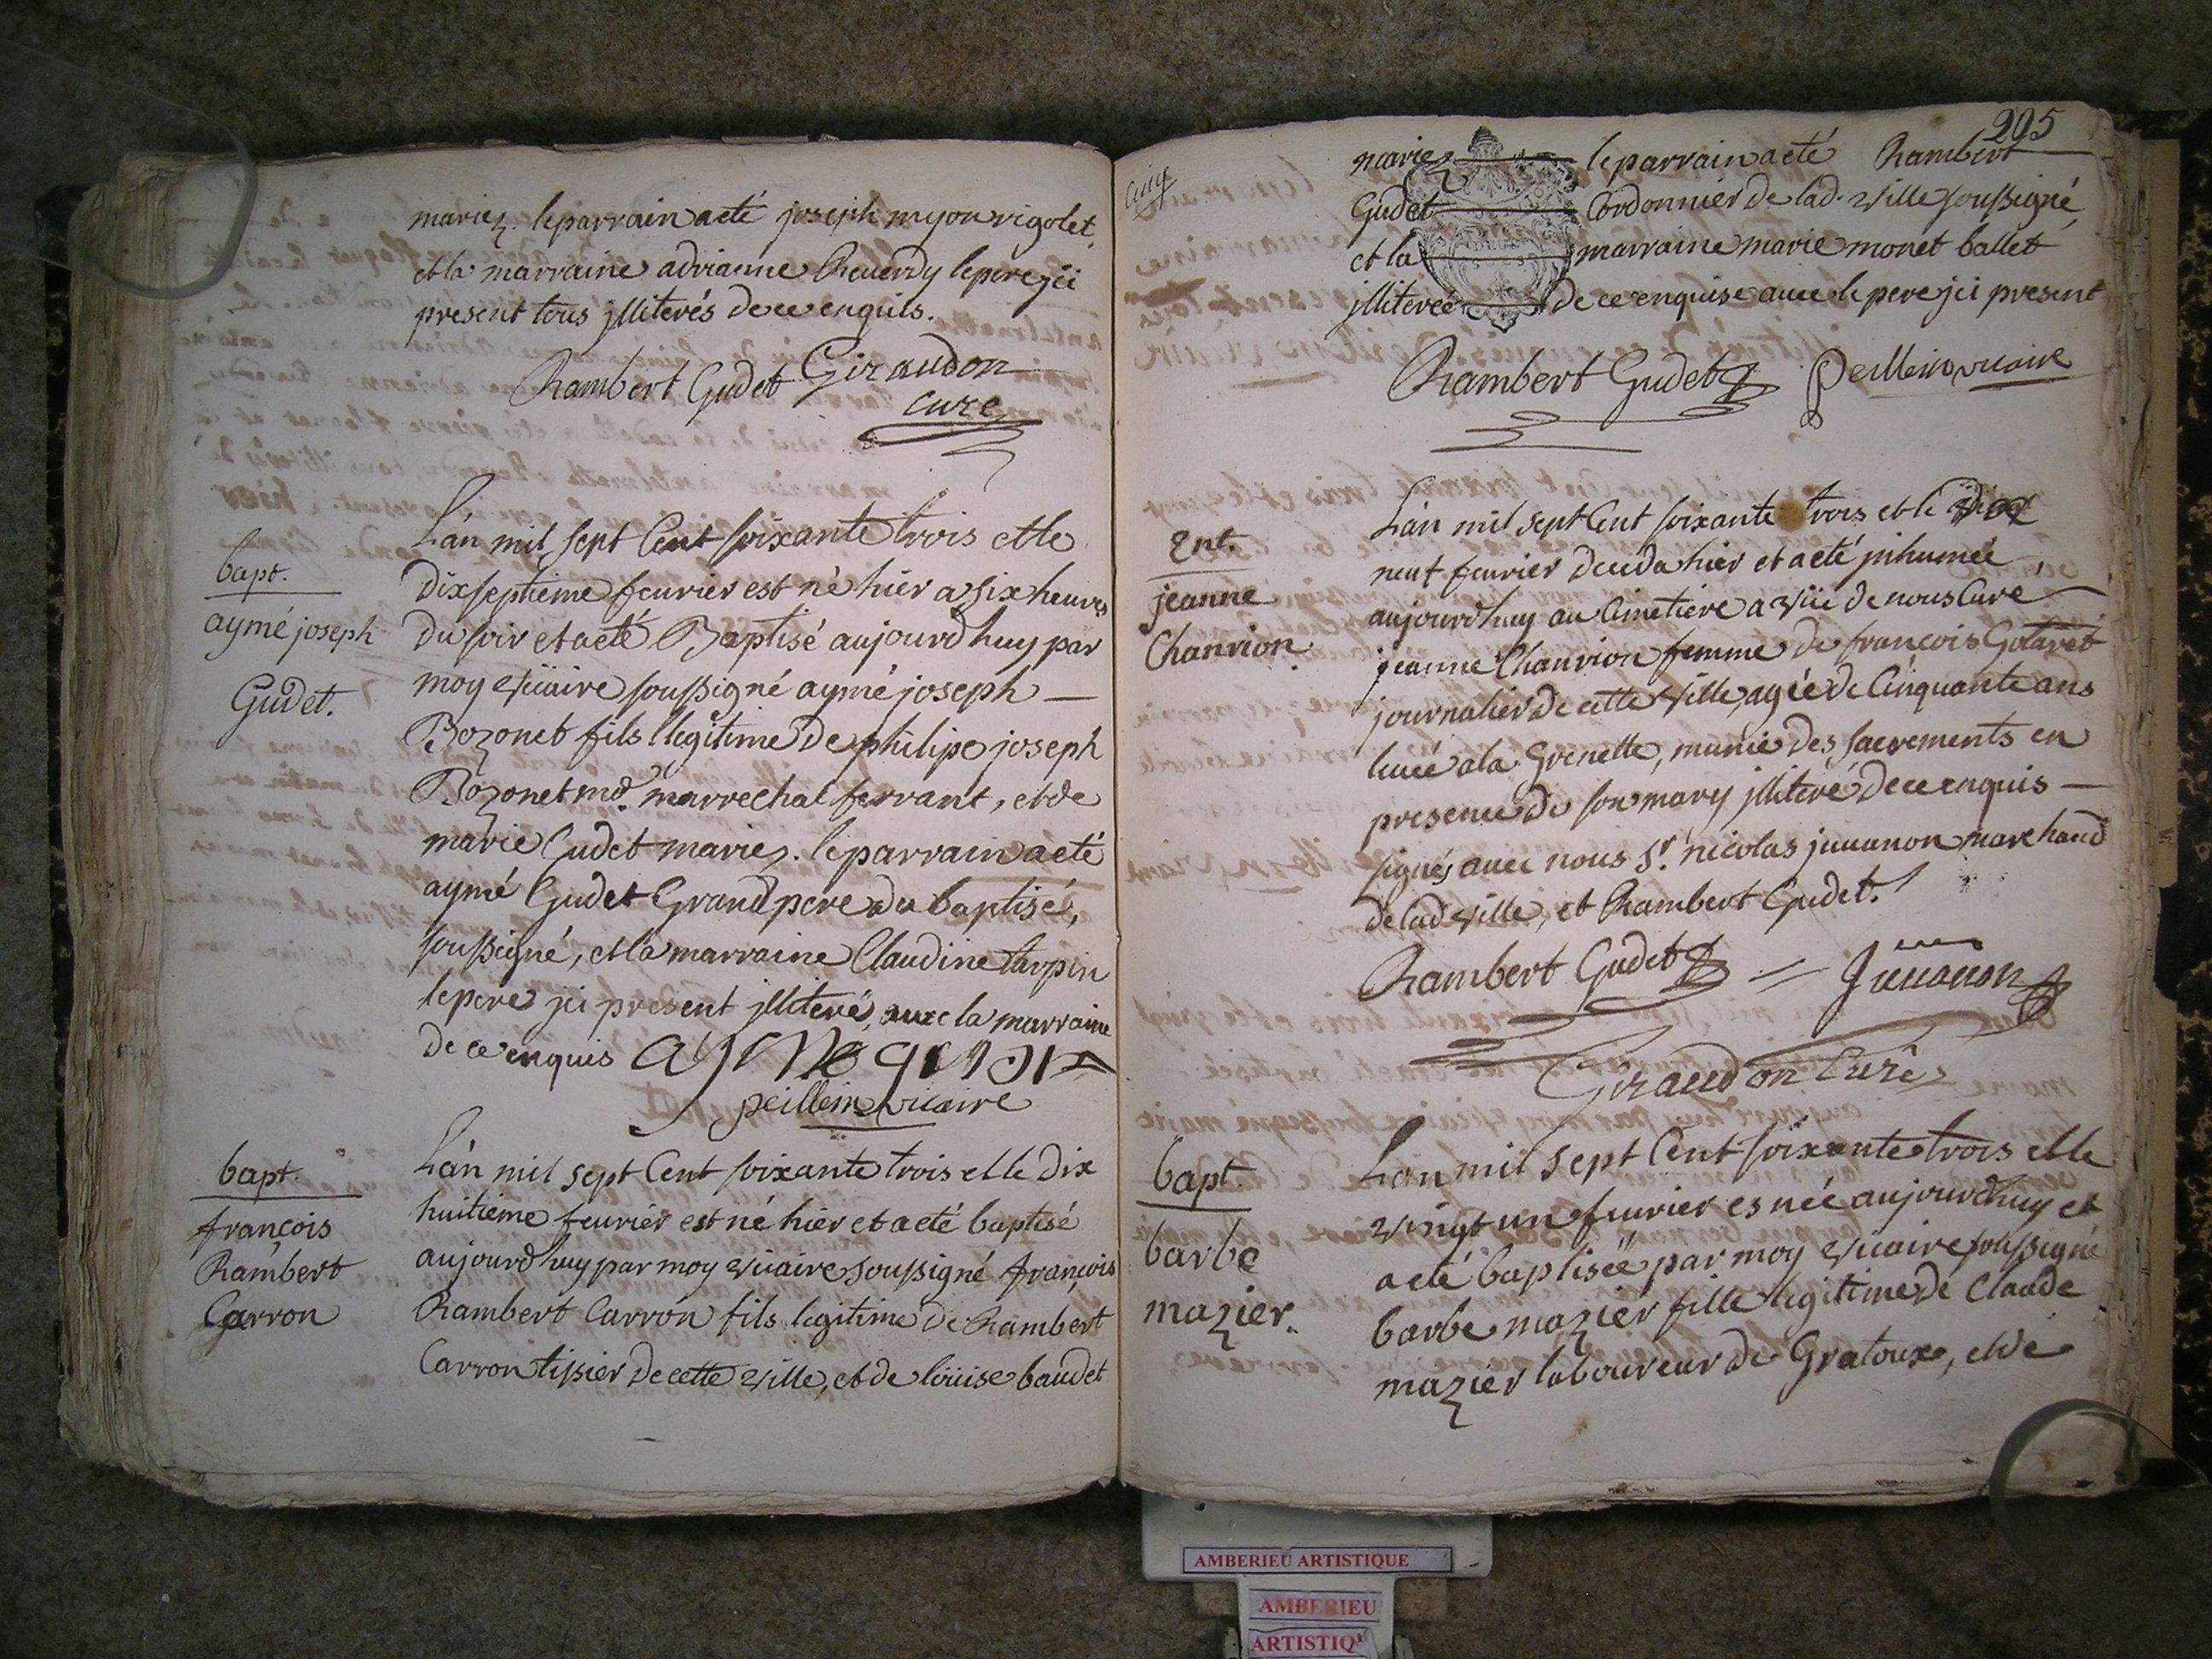 mariez. le parrain a eté joseph myon rigolet,
et la marraine adrianne Reverdy le pere jci
present tous jlliterés de ce enquis.
Rambert Gudet Giraudon
curé
bapt.
aymé joseph
Gudet.
L'an mil sept Cent soixante trois et le
dix septieme feurier est né hier a six heures
du soir et a eté Baptisé aujourd huy par
moy vicaire soussigné aymé joseph —
Bozonet fils legitime de philipe joseph
Bozonet md. marrechal ferrant, et de
marie Gudet mariez. le parrain a eté
aymé Gudet Grand pere du baptisé,
soussigné, et la marraine Claudine tarpin
le pere jci present jlliteré, avec la marraine
de ce enquis
peillein vicaire
bapt.
françois
Rambert
Carron
L'an mil sept Cent soixante trois et le dix
huitieme feurier est né hier et a eté baptisé
aujourd huy par moy vicaire soussigné françois
Rambert Carron fils legitime de Rambert
Carron tissier de cette ville, et de loüise baudet
205
mariez le parrain a eté Rambert
Gudet Cordonnier de lad. ville soussigné,
et la marraine marie monet ballet
jlliterée de ce enquise avec le pere jci present
Rambert Gudet peillein vicaire
Ent.
jeanne
Chanvion.
L'an mil sept Cent soixante trois et le dix
neuf feurier deceda hier et a eté jnhumée
aujourd huy au Cimetiere a vüe de nous Curé
jeanne Chanvion femme de françois Golaret
journalier de cette ville, agée de Cinquante ans
levée a la Grenette, munie des sacrements en
presence de son mary jlliteré de ce enquis —
signés avec nous Sr. nicolas juuanon marchand
de lad ville, et Rambert Gudet.
Rambert Gudet = Juuanon
Giraudon Curé
bapt.
barbe
mazier.
L'an mil sept Cent soixante trois et le
vingt un feurier es née aujourd huy et
a eté baptisée par moy vicaire soussigné
barbe mazier fille legitime de Claude
mazier laboureur de Gratoux, et de
AMBERIEU ARTISTIQUE
AMBERIEU
ARTISTIQ